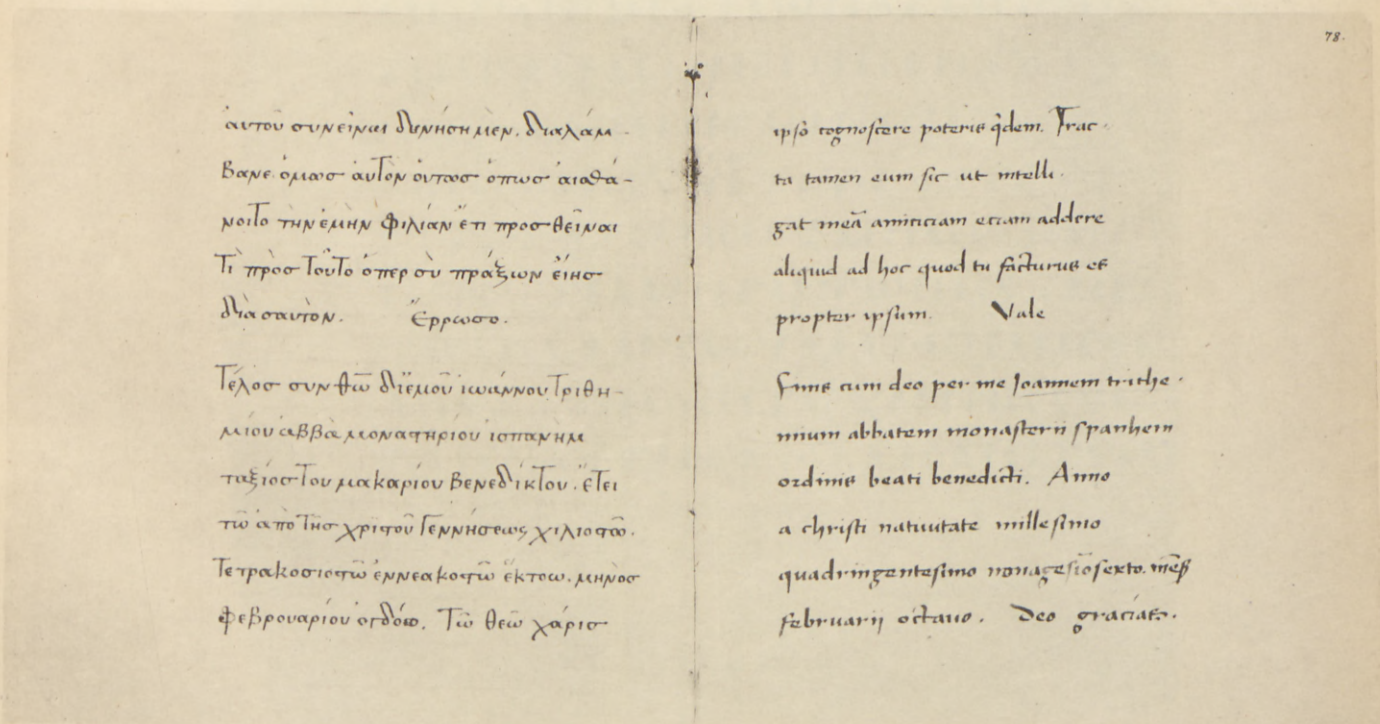 ἀυτοῦ συνεῖναι δυνήσημὲν. διαλάμ-
βανε ὁμως ἀυτὸν ὁυτωσ ὁπωσ ἀισθά-
νοιτο τὴν ἐμὴν φιλίαν ἔτι προσθεῖναι
τὶ πρὸσ τοῦτο ὁπερ σὺ πράξων ἔιησ
διὰ σαυτὸν. Ἔρρωσο.
Τέλοσ συν θῶ δἰ ἐμοῦ ἰωάννου τριθη-
μίου ἀββὰ μοναστηρίου ἱσπανὴμ
ταξίοσ του μακαρίου Βενεδίκτου. ἔτει
τῶ ἀπὸ τῆσ χριστοῦ Γεννήσεως χιλιοστῶ.
Τετρακοσιοστῶ ἐννεακοστῶ ἕκτοω. μηνὸσ
Φεβρουαρίου ὀγδόω. Τῶ θεῶ χάρισ
78.
ipsō cognoscere poteris q̇dem. Trac-
ta tamen eum sic ut intelli-
gat meā amiciciam eciam addere
aliquid ad hoc quod tu facturus es
propter ipsum. Vale
Finis cum deo per me Joannem trithe-
mium abbatem monasterii spanhem
ordinis beati benedicti. Anno
a christi nativitate millesimo
quadringentesimo nonagesiō sexto. mēs̄
februarij octavo. Deo gracias.